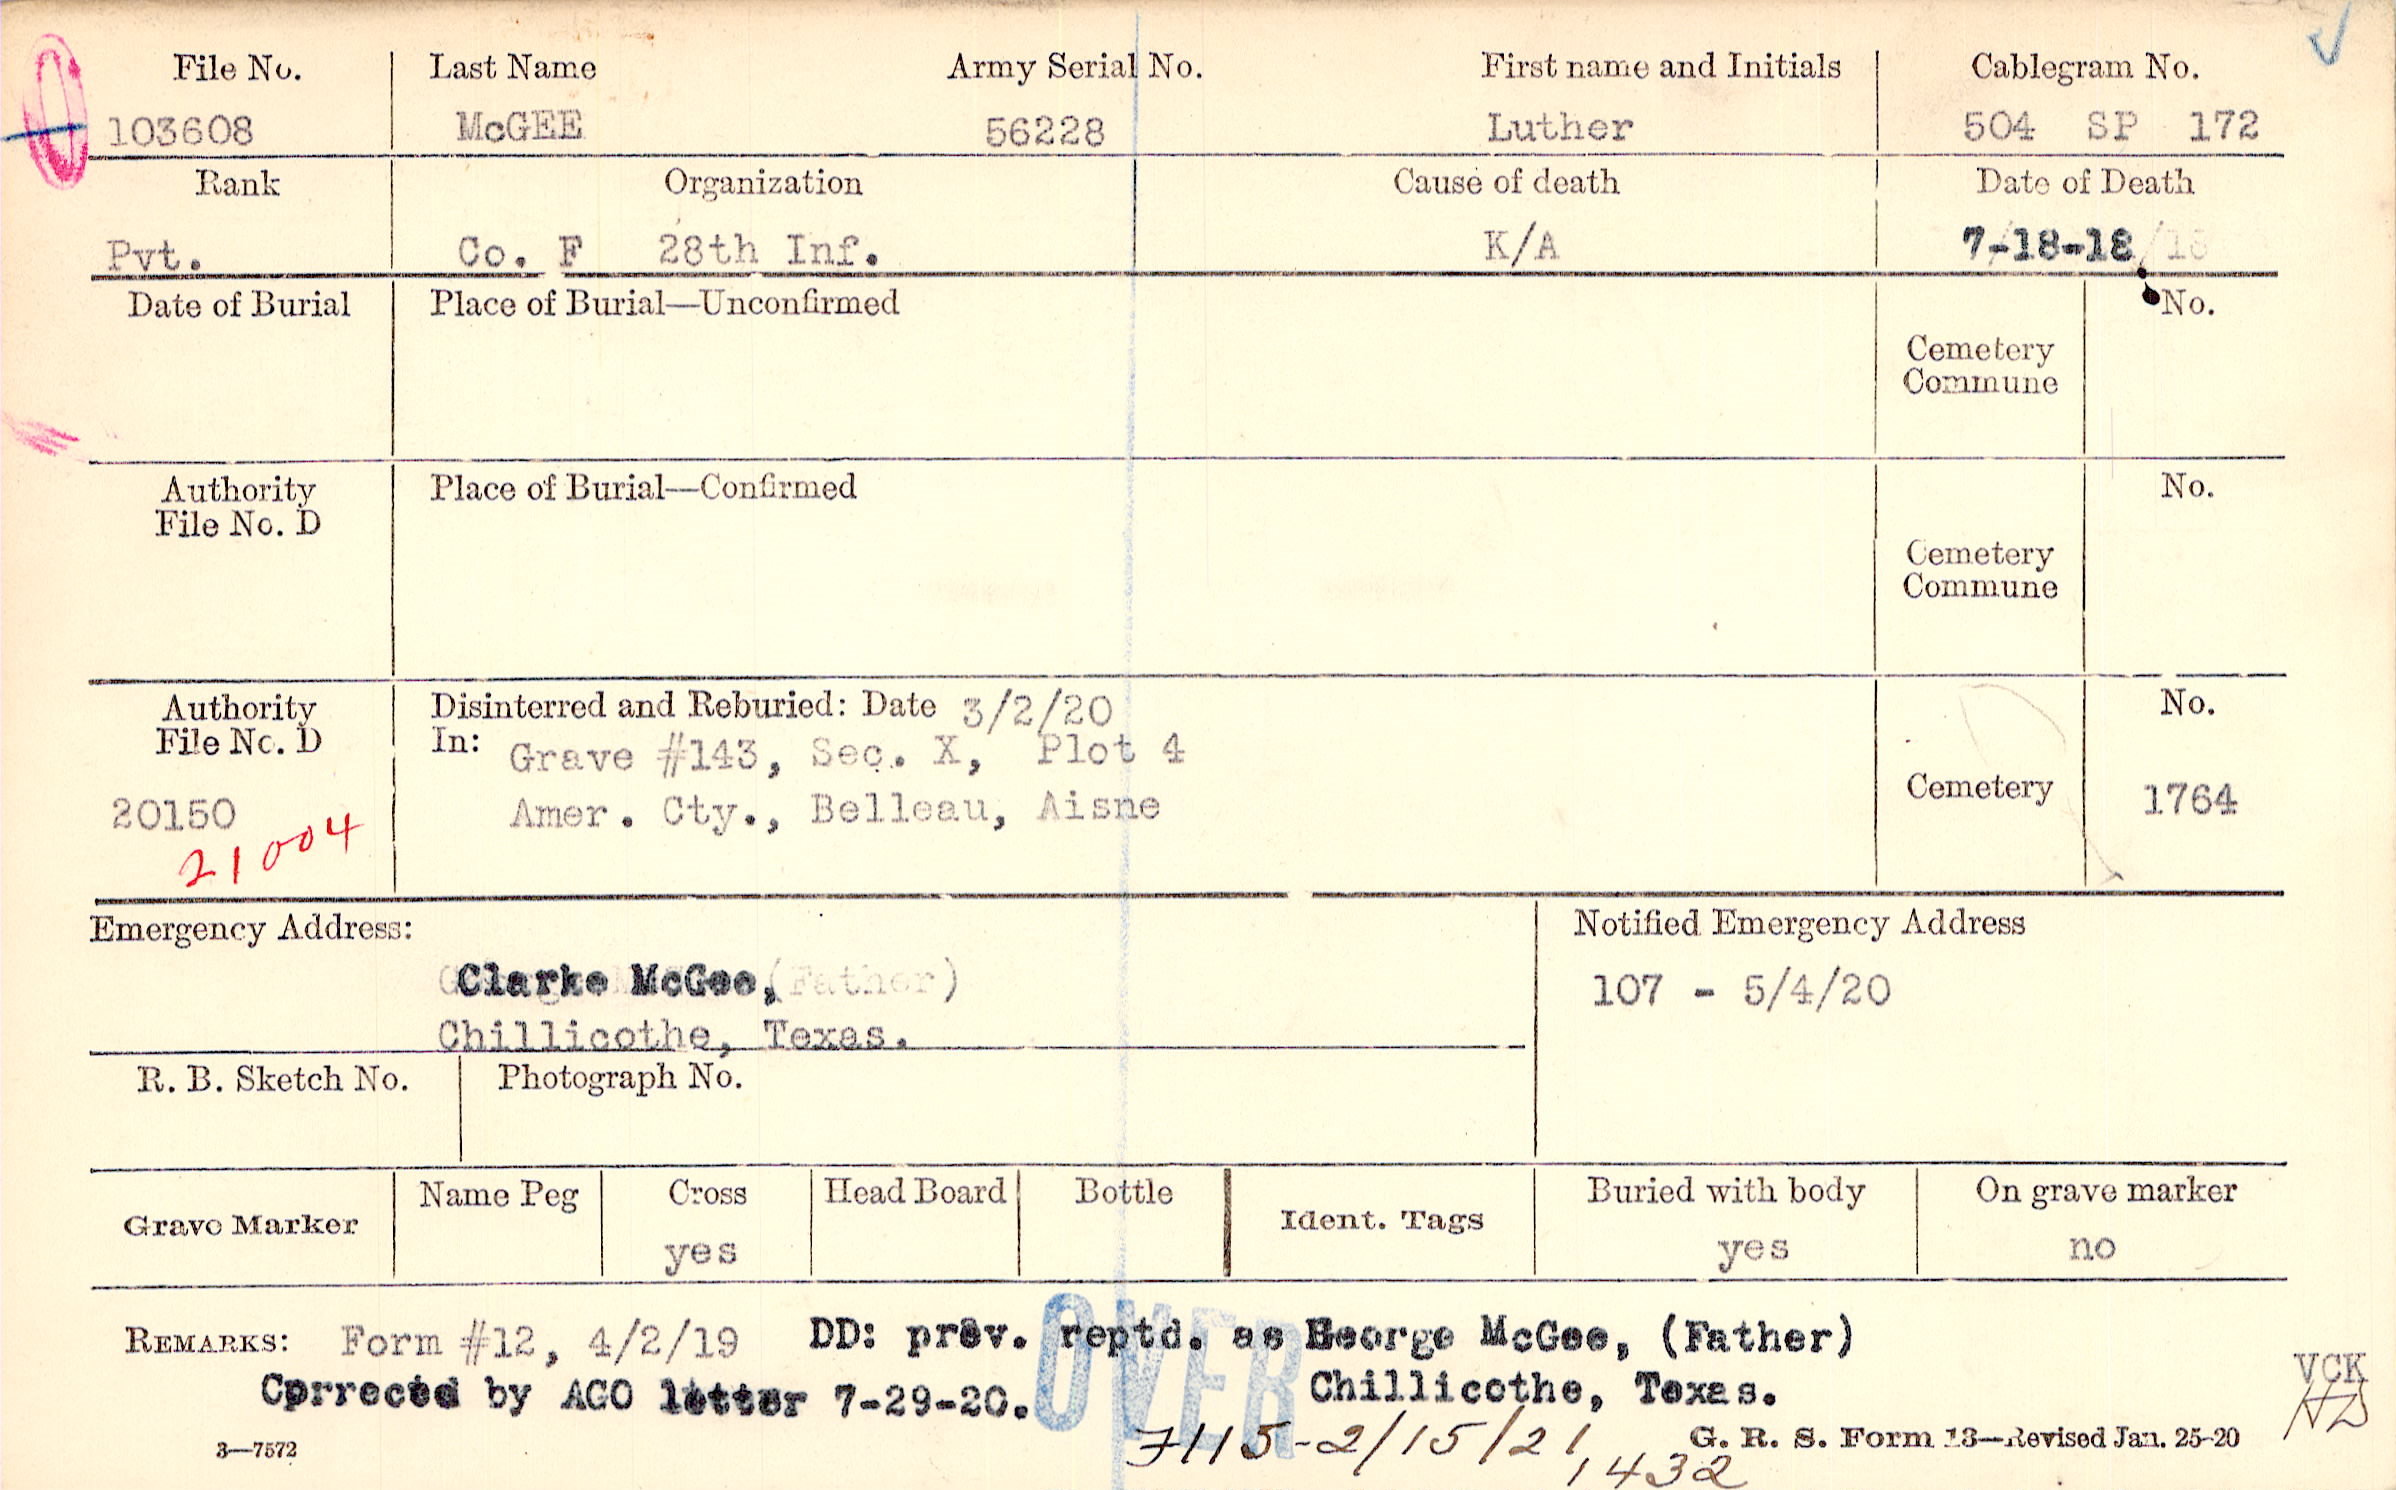 File No. Last Name Army Serial No. First name and Initials Cablegram No.
103608 McGEE 56228 Luther 504 SP 172
Rank Organization Cause of death Date of Death
Pvt. Co. F 28th Inf. K/A 7-18-18
Date of Burial Place of Burial—Unconfirmed No.
Cemetery
Commune
Authority Place of Burial—Confirmed No.
File No. D
Cemetery
Commune
Authority Disinterred and Reburied: Date 3/2/20 No.
File No. D In: Grave #143, Sec. X, Plot 4
Cemetery
20150 Amer. Cty., Belleau, Aisne 1764
21004
Emergency Address: Notified Emergency Address
Clarke McGee, (Father) 107 - 5/4/20
Chillicothe, Texas.
R. B. Sketch No. Photograph No.
Name Peg Cross Head Board Bottle Buried with body On grave marker
Grave Marker Ident. Tags
yes yes no
REMARKS: Form #12, 4/2/19 DD: prev. reptd. as George McGee, (Father)
Corrected by AGO letter 7-29-20. Chillicothe, Texas.
OVER
VCK
7115-2/15/21
3—7572 G. R. S. Form 13—Revised Jan. 25-20
1432